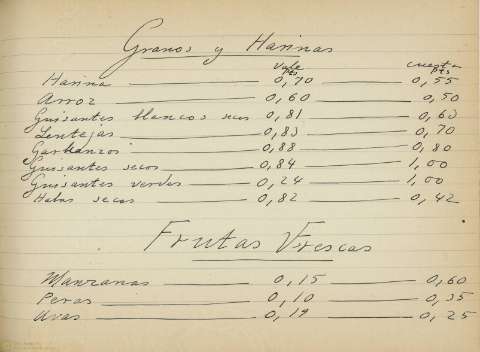 Granos y Harinas
Vale pts cuesta pts
Harina 0,70 0,55
Arroz 0,60 0,50
Guisantes blancos secos 0,81 0,60
Lentejas 0,83 0,70
Garbanzos 0,88 0,80
Guisantes secos 0,84 1,00
Guisantes verdes 0,24 1,00
Habas secas 0,82 0,42
Frutas Frescas
Manzanas 0,15 0,60
Peras 0,10 0,35
Uvas 0,19 0,25